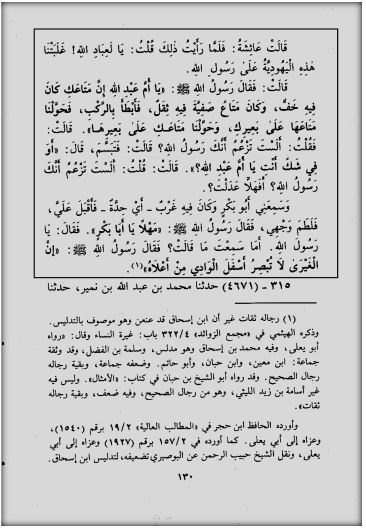 قَالَتْ عَائِشَةُ: فَلَمَّا رَأَيْتُ ذٰلِكَ قُلْتُ: يَا لَعِبَادِ اللهِ! غَلَبَتْنَا
هٰذِهِ الْيَهُودِيَّةُ عَلَىٰ رَسُولِ اللهِ.
قَالَتْ: فَقَالَ رَسُولُ اللهِ ﷺ: «يَا أُمَّ عَبْدِ اللهِ إِنَّ مَتَاعَكِ كَانَ
فِيهِ خَفٌّ، وَكَانَ مَتَاعُ صَفِيَّةَ فِيهِ ثِقَلٌ، فَأَبْطَأَ بِالرَّكْبِ، فَحَوَّلْنَا
مَتَاعَهَا عَلَىٰ بَعِيرِكِ، وَحَوَّلْنَا مَتَاعَكِ عَلَىٰ بَعِيرِهَا». قَالَتْ:
فَقُلْتُ: أَلَسْتَ تَزْعُمُ أَنَّكَ رَسُولُ اللهِ؟ قَالَتْ: فَتَبَسَّمَ، قَالَ: «أَوَ
فِي شَكٍّ أَنْتِ يَا أُمَّ عَبْدِ اللهِ؟». قَالَتْ: قُلْتُ: أَلَسْتَ تَزْعُمُ أَنَّكَ
رَسُولُ اللهِ؟ أَفَهَلَّا عَدَلْتَ؟
وَسَمِعَنِي أَبُو بَكْرٍ وَكَانَ فِيهِ غَرْبٌ - أَيْ حِدَّةٌ - فَأَقْبَلَ عَلَيَّ،
فَلَطَمَ وَجْهِي، فَقَالَ رَسُولُ اللهِ ﷺ: «مَهْلًا يَا أَبَا بَكْرٍ». فَقَالَ: يَا
رَسُولَ اللهِ. أَمَا سَمِعْتَ مَا قَالَتْ؟ فَقَالَ رَسُولُ اللهِ ﷺ: «إِنَّ
الْغَيْرَىٰ لَا تُبْصِرُ أَسْفَلَ الْوَادِي مِنْ أَعْلَاهُ»(١).
٣١٥ - (٤٦٧١) حدثنا محمد بن عبد الله بن نمير، حدثنا
(١) رجاله ثقات غير أن ابن إسحاق قد عنعن وهو موصوف بالتدليس.
وذكره الهيثمي في «مجمع الزوائد» ٣٢٢/٤ باب: غيرة النساء وقال: «رواه
أبو يعلى، وفيه محمد بن إسحاق وهو مدلس، وسلمة بن الفضل، وقد وثقة
جماعة: ابن معين، وابن حبان، وأبو حاتم. وضعفه جماعة، وبقية رجاله
رجال الصحيح. وقد رواه أبو الشيخ بن حبان في كتاب: «الأمثال». وليس فيه
غير أسامة بن زيد الليثي، وهو من رجال الصحيح، وفيه ضعف، وبقية رجاله
ثقات».
وأورده الحافظ ابن حجر في «المطالب العالية» ١٩/٢ برقم (١٥٤٠)،
وعزاه إلى أبي يعلى. كما أورده في ١٥٧/٢ برقم (١٩٢٧) وعزاه إلى أبي
يعلى، ونقل الشيخ حبيب الرحمن عن البوصيري تضعيفه، لتدليس ابن إسحاق.
١٣٠